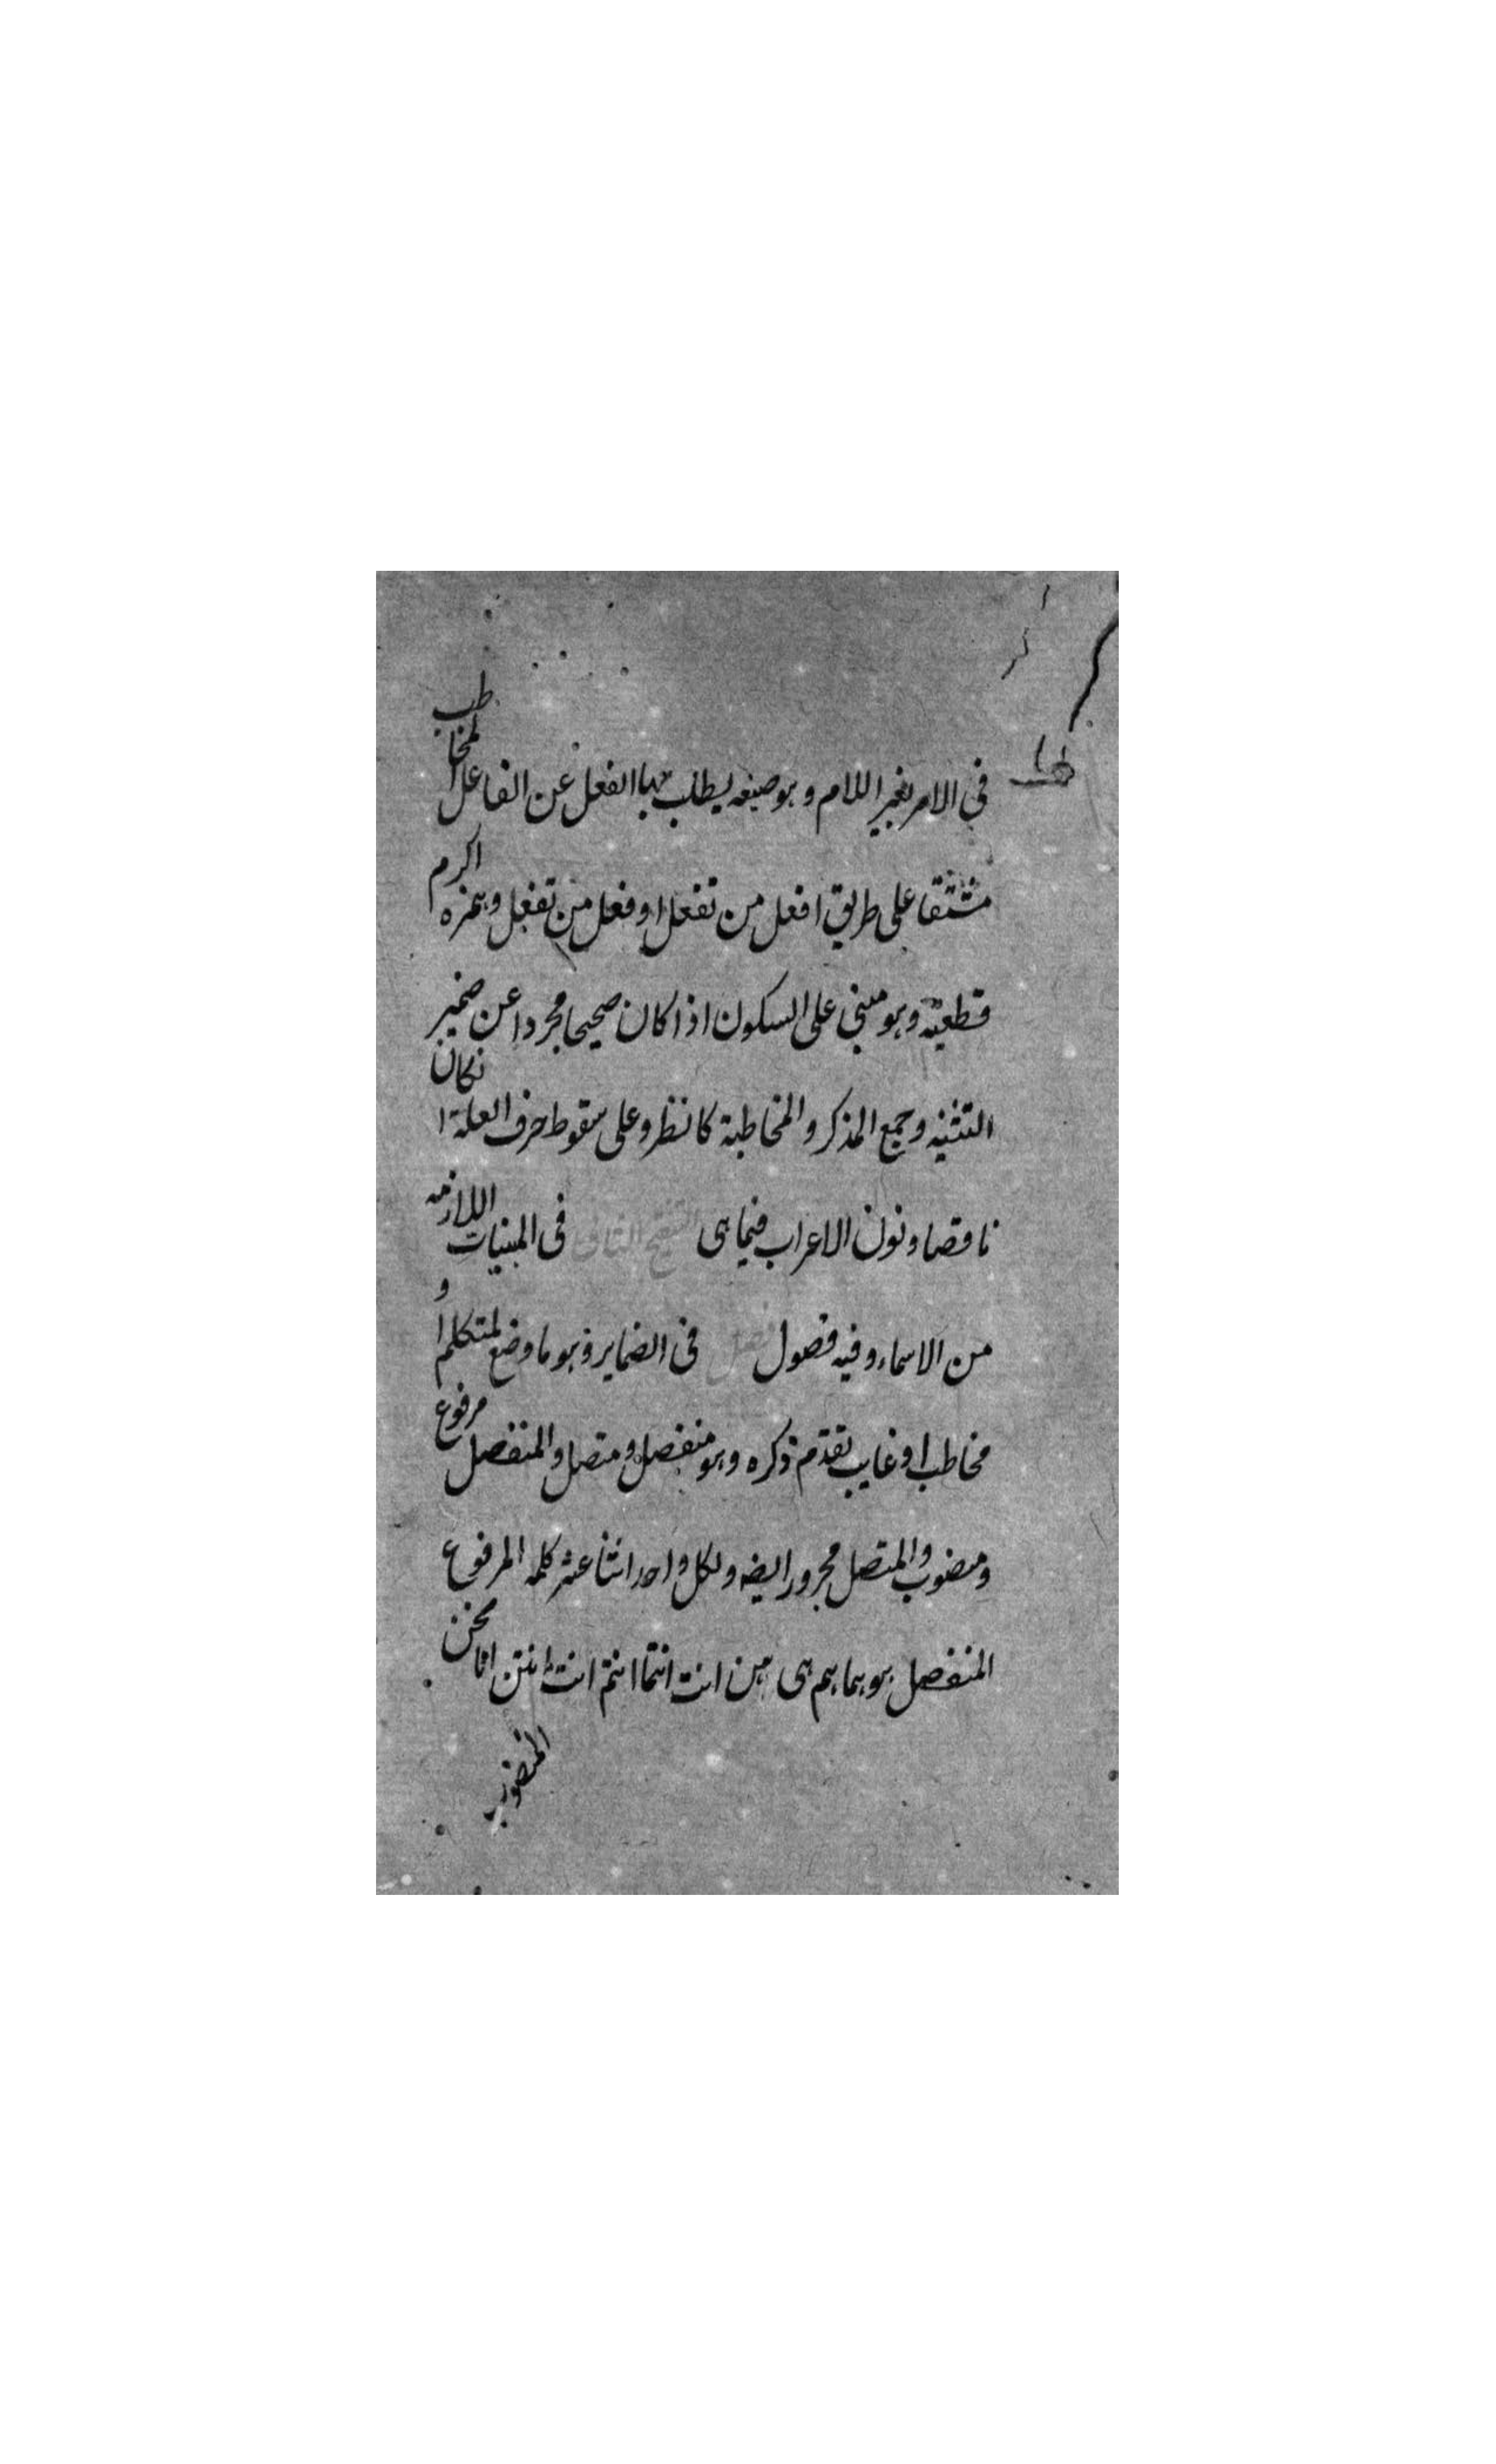 في الامر بغير اللام وهو صيغه يطلب بها الفعل عن الفاعل المخاطب
مشتقا على طريق افعل من تفعل او فعل من تفعل وهمزه اكرم
قطعية وهو مبني على السكون اذا كان صحيحا مجردا عن ضمير
التثنيه وجمع المذكر والمخاطبة كانظر وعلى سقوط حرف العلة انكان
ناقصا ونون الاعراب فيما هى التنقيح الثانى فى المبنيات اللازمه
من الاسماء وفيه فصول فصل فى الضماير وهو ما وضع لمتكلم او
مخاطب او غايب تقدم ذكره وهو منفصل ومتصل والمنفصل مرفوع
ومنصوب والمتصل مجرور ايضه ولكل واحد اثنا عشر كلمه المرفوع
المنفصل هو هما هم هى هن انت انتما انتم انت انتن انا نحن
المنصوب